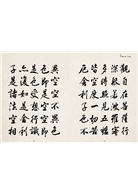 觀自在菩薩行
深般若波羅蜜
多時照見五蘊
皆空度一切苦
厄舍利子色不
異空空不異色
色即是空空即
是色受想行識
亦復如是舍利
子是諸法空相